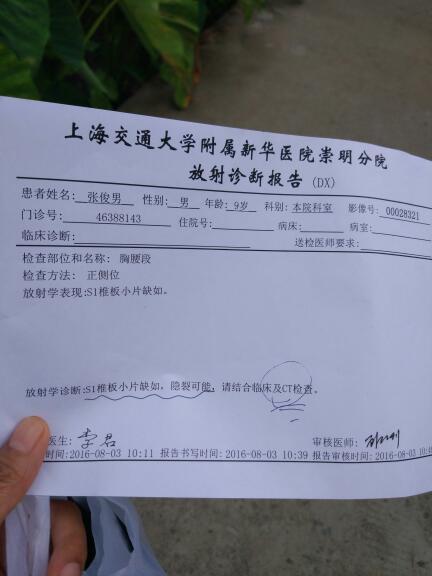 上海交通大学附属新华医院崇明分院
放射诊断报告 (DX)
患者姓名: 张俊男 性别: 男 年龄: 9岁 科别: 本院科室 影像号: 00028321
门诊号: 46388143 住院号: 病床: 病室:
临床诊断: 送检医师要求:
检查部位和名称: 胸腰段
检查方法: 正侧位
放射学表现:S1椎板小片缺如。
放射学诊断:S1椎板小片缺如，隐裂可能，请结合临床及CT检查。
医生: 李君 审核医师:
时间:2016-08-03 10:11 报告书写时间:2016-08-03 10:39 报告审核时间:2016-08-03